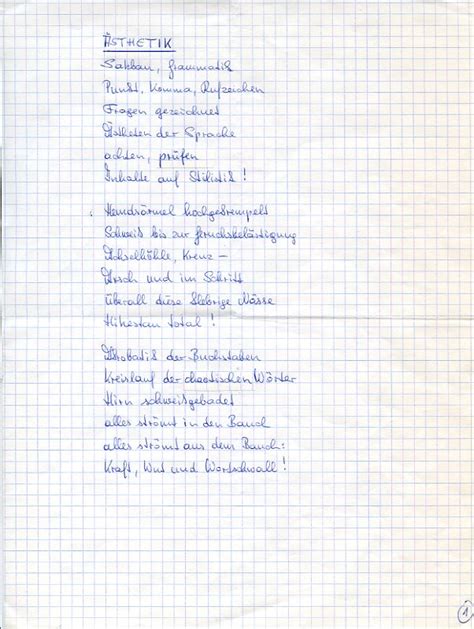 ÄSTHETIK
Satzbau, Grammatik
Punkt, Komma, Rufzeichen
Fragen gezeichnet
Ästheten der Sprache
achten, prüfen
Inhalte auf Stilistik!
Hemdsärmel hochgekrempelt
Schweiß bis zur Geruchsbelästigung
Achselhöhle, Kreuz –
Arsch und im Schritt
überall diese klebrige Nässe
Hikestau total!
Akrobatik der Buchstaben
Kreislauf der chaotischen Wörter
Hirn schweißgebadet
alles strömt in den Bauch
alles strömt aus dem Bauch:
Kraft, Wut und Wortschwall!
1